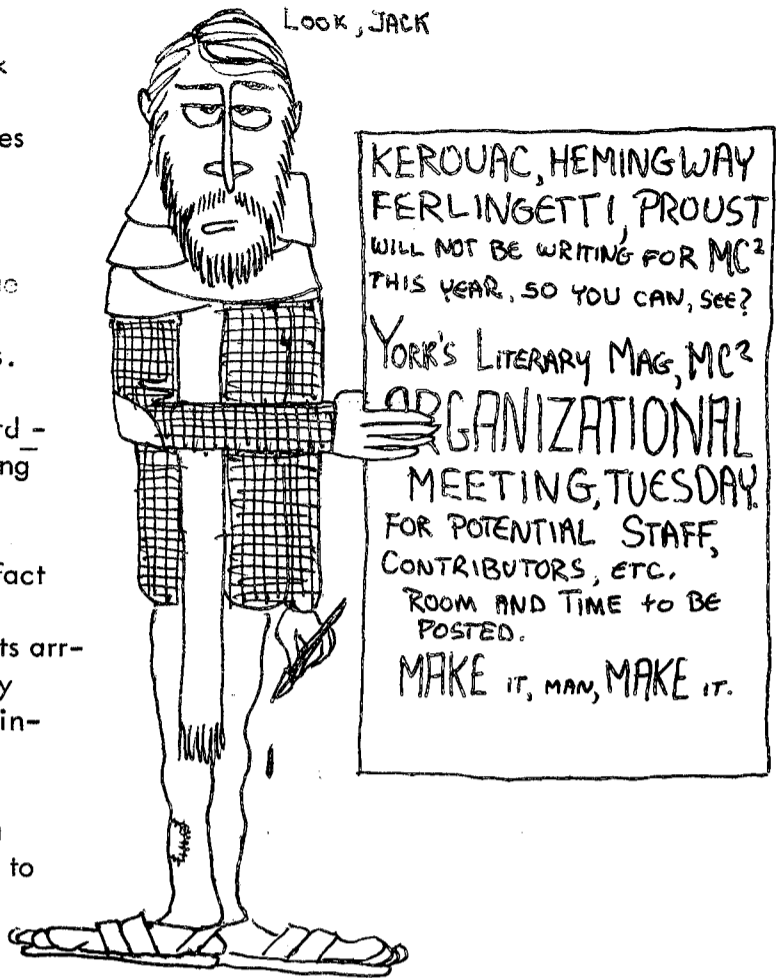 Look, JACK
es
s.
rd-
ng
fact
ts arr-
y
in-
to
KEROUAC, HEMINGWAY
FERLINGETTI, PROUST
WILL NOT BE WRITING FOR MC²
THIS YEAR, SO YOU CAN, SEE?
YORK'S LITERARY MAG, MC²
ORGANIZATIONAL
MEETING, TUESDAY.
FOR POTENTIAL STAFF,
CONTRIBUTORS, ETC.
ROOM AND TIME to BE
POSTED.
MAKE IT, MAN, MAKE IT.